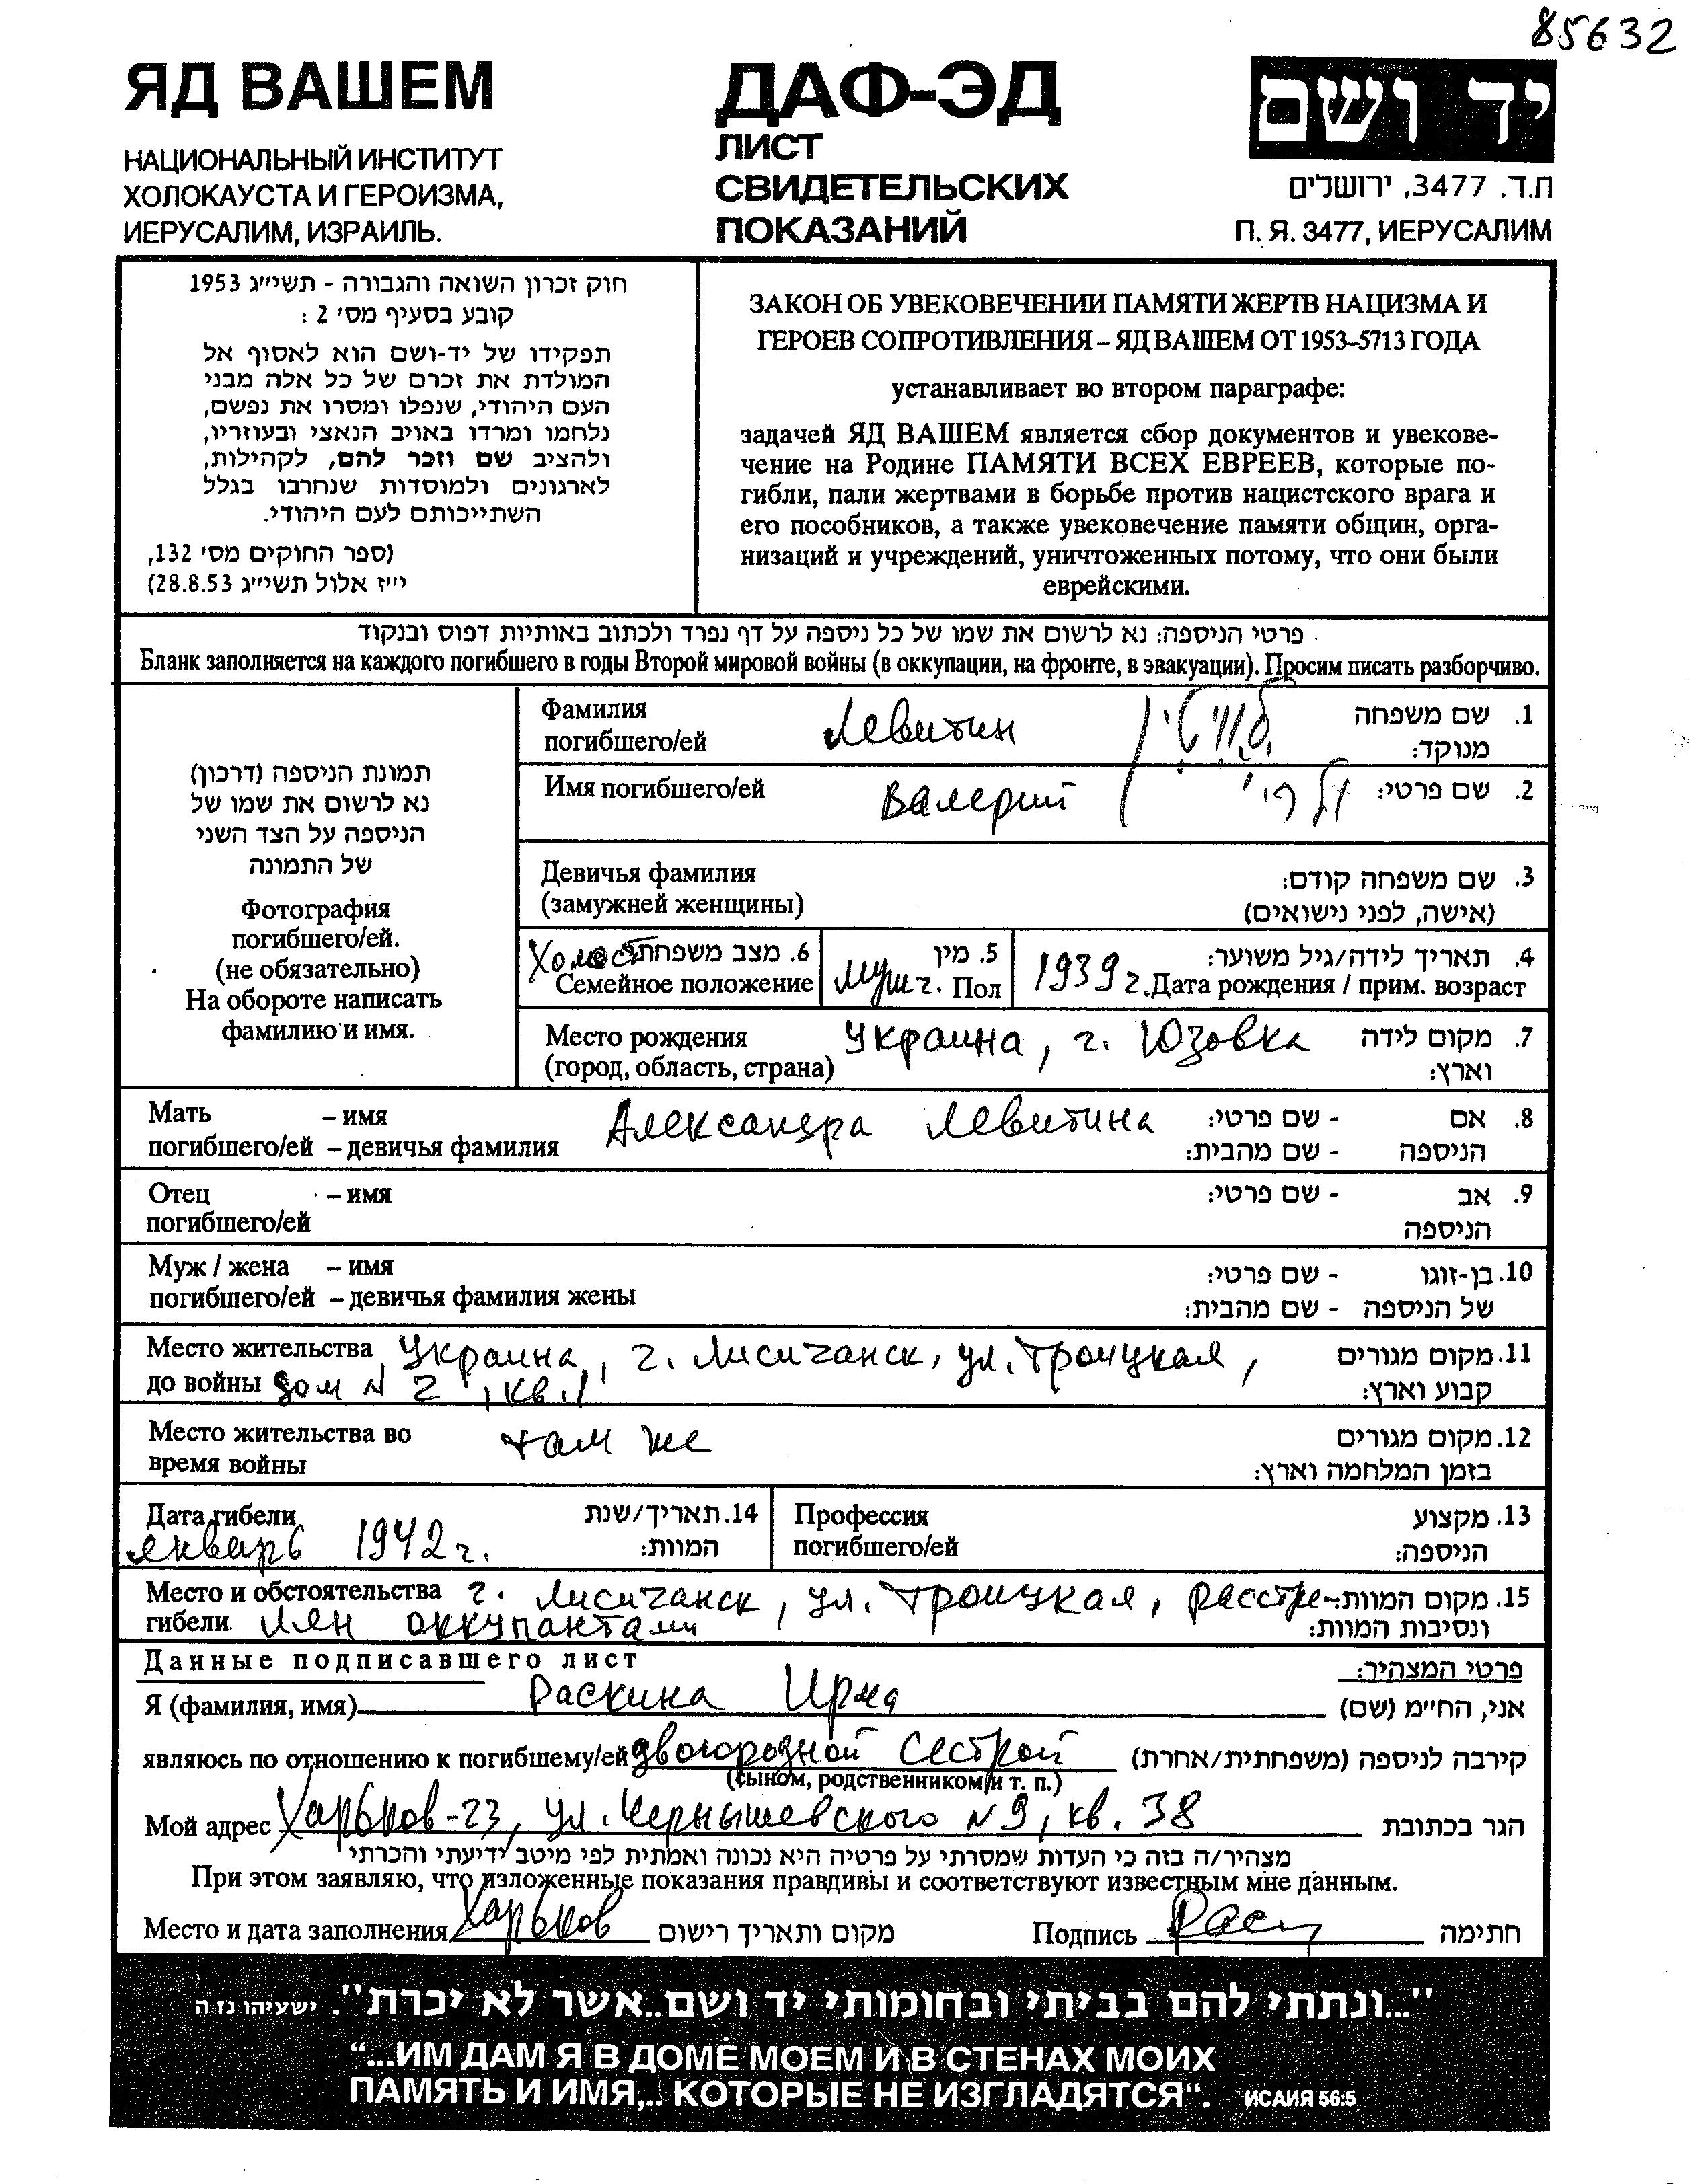 85632
ЯД ВАШЕМ
НАЦИОНАЛЬНЫЙ ИНСТИТУТ
ХОЛОКАУСТА И ГЕРОИЗМА,
ИЕРУСАЛИМ, ИЗРАИЛЬ.
ДАФ-ЭД
ЛИСТ
СВИДЕТЕЛЬСКИХ
ПОКАЗАНИЙ
יד ושם
ת.ד. 3477, ירושלים
П. Я. 3477, ИЕРУСАЛИМ
חוק זכרון השואה והגבורה - תשי״ג 1953
קובע בסעיף מס׳ 2 :
תפקידו של יד-ושם הוא לאסוף אל
המולדת את זכרם של כל אלה מבני
העם היהודי, שנפלו ומסרו את נפשם,
נלחמו ומרדו באויב הנאצי ובעוזריו,
ולהציב שם וזכר להם, לקהילות,
לארגונים ולמוסדות שנחרבו בגלל
השתייכותם לעם היהודי.
(ספר החוקים מס׳ 132,
י״ז אלול תשי״ג 28.8.53)
ЗАКОН ОБ УВЕКОВЕЧЕНИИ ПАМЯТИ ЖЕРТВ НАЦИЗМА И
ГЕРОЕВ СОПРОТИВЛЕНИЯ – ЯД ВАШЕМ ОТ 1953–5713 ГОДА
устанавливает во втором параграфе:
задачей ЯД ВАШЕМ является сбор документов и увекове-
чение на Родине ПАМЯТИ ВСЕХ ЕВРЕЕВ, которые по-
гибли, пали жертвами в борьбе против нацистского врага и
его пособников, а также увековечение памяти общин, орга-
низаций и учреждений, уничтоженных потому, что они были
еврейскими.
פרטי הניספה: נא לרשום את שמו של כל ניספה על דף נפרד ולכתוב באותיות דפוס ובנקוד
Бланк заполняется на каждого погибшего в годы Второй мировой войны (в оккупации, на фронте, в эвакуации). Просим писать разборчиво.
תמונת הניספה (דרכון)
נא לרשום את שמו של
הניספה על הצד השני
של התמונה
Фотография
погибшего/ей.
(не обязательно)
На обороте написать
фамилию и имя.
Фамилия погибшего/ей Левитин לויטין 1. שם משפחה מנוקד:
Имя погибшего/ей Валерий ולרי 2. שם פרטי:
Девичья фамилия 3. שם משפחה קודם:
(замужней женщины) (אישה, לפני נישואים)
Холост 6. מצב משפחתי 5. מין 4. תאריך לידה/גיל משוער:
Семейное положение муж г. Пол 1939 г. Дата рождения / прим. возраст
Место рождения Украина, г. Юзовка 7. מקום לידה
(город, область, страна) וארץ:
Мать – имя Александра Левитина 8. אם - שם פרטי:
погибшего/ей – девичья фамилия הניספה - שם מהבית:
Отец – имя 9. אב - שם פרטי:
погибшего/ей הניספה
Муж / жена – имя 10. בן-זוגו - שם פרטי:
погибшего/ей – девичья фамилия жены של הניספה - שם מהבית:
Место жительства Украина, г. Лисичанск, ул. Троицкая, 11. מקום מגורים
до войны дом N 2, кв. 1 קבוע וארץ:
Место жительства во там же 12. מקום מגורים
время войны בזמן המלחמה וארץ:
Дата гибели 14. תאריך/שנת Профессия 13. מקצוע
январь 1942 г. המוות: погибшего/ей הניספה:
Место и обстоятельства г. Лисичанск, ул. Троицкая, расстре- 15. מקום המוות
гибели лян оккупантами ונסיבות המוות:
Данные подписавшего лист פרטי המצהיר:
Я (фамилия, имя) Раскина Ирма אני, הח״מ (שם)
являюсь по отношению к погибшему/ей двоюродной сестрой קירבה לניספה (משפחתית/אחרת)
(сыном, родственником и т. п.)
Мой адрес Харьков-23, ул. Чернышевского N 9, кв. 38 הגר בכתובת
מצהיר/ה בזה כי העדות שמסרתי על פרטיה היא נכונה ואמתית לפי מיטב ידיעתי והכרתי
При этом заявляю, что изложенные показания правдивы и соответствуют известным мне данным.
Место и дата заполнения Харьков מקום ותאריך רישום Подпись Раск חתימה
"...ונתתי להם בביתי ובחומותי יד ושם..אשר לא יכרת". ישעיהו נז ה
“...ИМ ДАМ Я В ДОМЕ МОЕМ И В СТЕНАХ МОИХ
ПАМЯТЬ И ИМЯ,.. КОТОРЫЕ НЕ ИЗГЛАДЯТСЯ“. ИСАИЯ 56:5